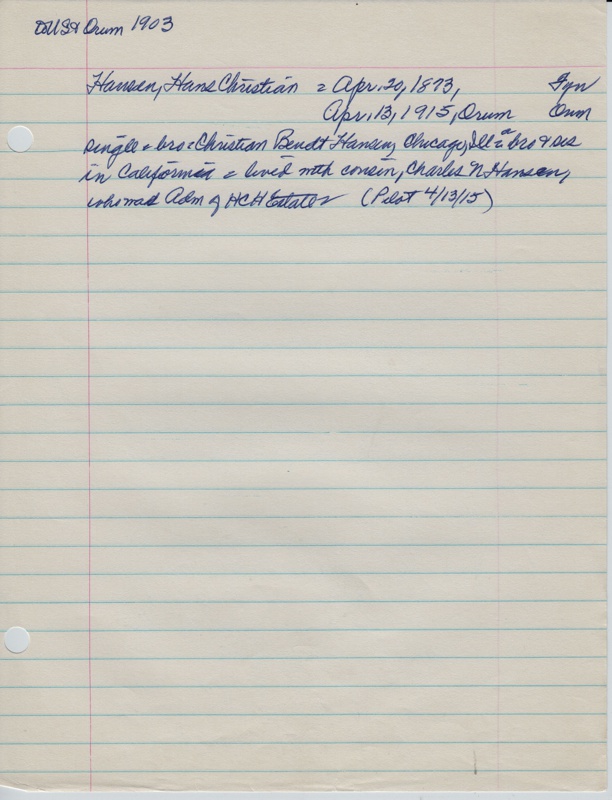 to US & Orum 1903
Hansen, Hans Christian = Apr. 20, 1873, Fyn
Apr. 13, 1915, Orum Orum
single = bro = Christian Bendt Hansen, Chicago, Ill = a bro & sis
in California = lived with cousin, Charles N Hansen,
who was Adm of HCH Estate = (Pilot 4/13/15)